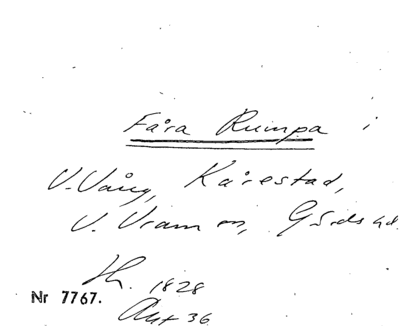 Fåra Rumpa i
V. Vång, Kårestad,
V. Vram m,
H. 1828
Nr 7767.
Akt 36